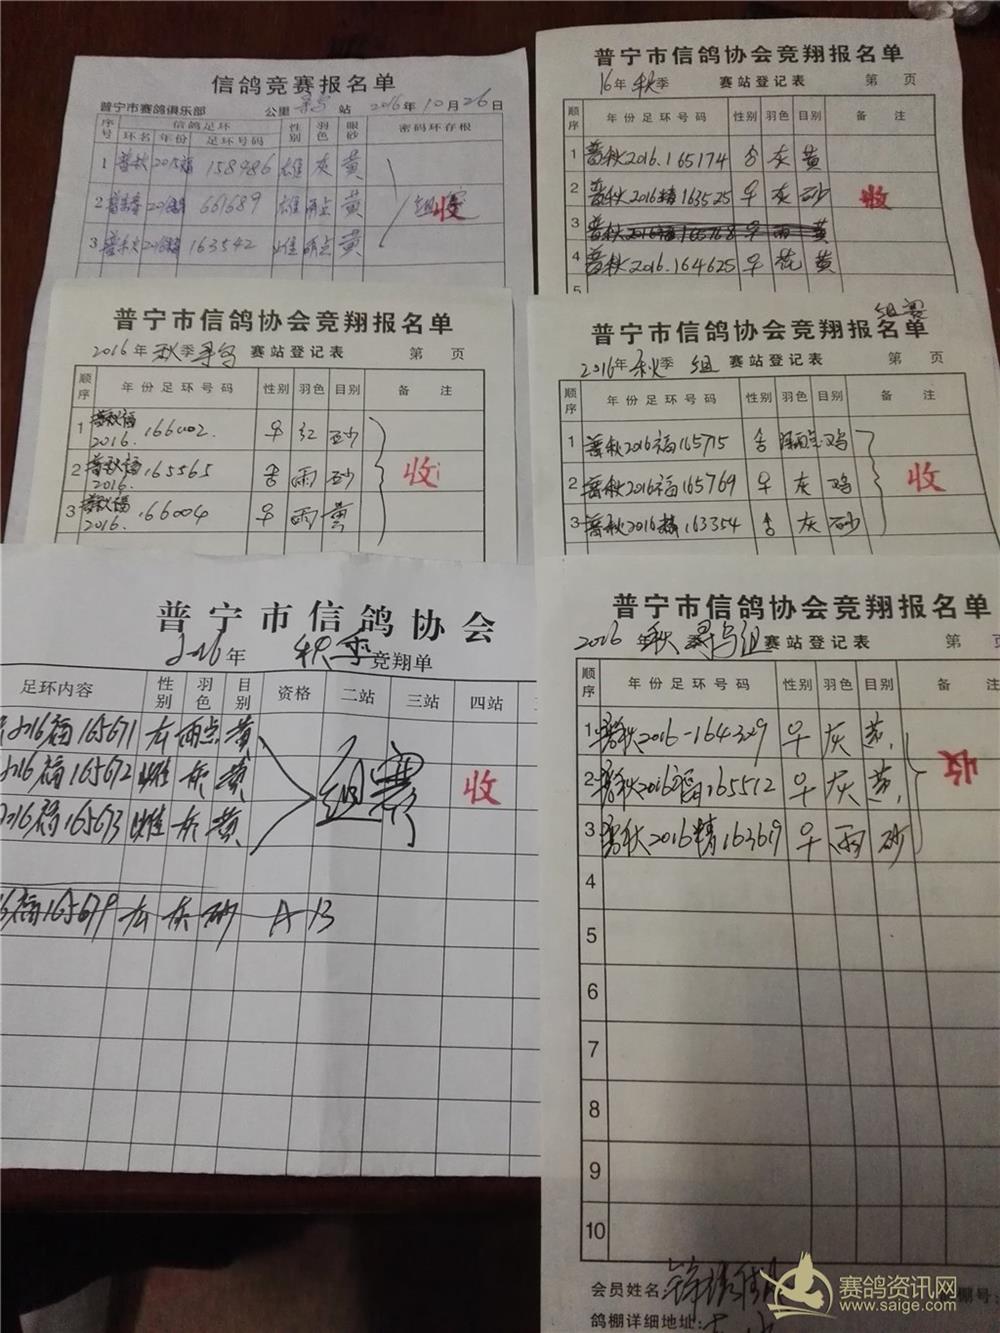 信鸽竞赛报名单
普宁市赛鸽俱乐部 公里 寻乌 站 2016年10月26日
序号 信鸽足环 性别 羽色 眼砂 密码环存根
环名 年份 足环号码
1 普秋 2015福 158986 雄 灰 黄
2 2016 661689 雄 雨点 黄 组赛 收
3 普秋 2016精 163542 雌 雨点 黄
普宁市信鸽协会竞翔报名单
16年秋季 赛站登记表 第 页
顺序 年份足环号码 性别 羽色 目别 备 注
1 普秋2016.165174 灰 黄
2 普秋2016精163525 灰 砂 收
3 普秋2016福165768 雨 黄
4 普秋2016.164625 花 黄
5
普宁市信鸽协会竞翔报名单
2016年秋季寻乌 赛站登记表 第 页
顺序 年份足环号码 性别 羽色 目别 备 注
1 普秋福2016.166002. 红 砂
2 普秋福2016.165565 雨 砂 收
3 普秋福2016.166004 雨 黄
组赛
普宁市信鸽协会竞翔报名单
2016年秋季 组 赛站登记表 第 页
顺序 年份足环号码 性别 羽色 目别 备 注
1 普秋2016福165715 鸡
2 普秋2016福165769 灰 鸡 收
3 普秋2016精163354 灰 砂
普宁市信鸽协会
2016年 秋季 竞翔单
足环内容 性别 羽色 目别 资格 二站 三站 四站
2016福165671 雨点 黄
2016福165672 雌 灰 黄 组赛 收
2016福165673 雌 灰 黄
福165679 灰 砂 A B
普宁市信鸽协会竞翔报名单
2016年秋季寻乌组 赛站登记表 第 页
顺序 年份足环号码 性别 羽色 目别 备 注
1 普秋2016-164329 灰 黄
2 普秋2016福165572 灰 黄 收
3 普秋2016精163619 雨 砂
4
5
6
7
8
9
10
会员姓名 棚号:
鸽棚详细地址:
赛鸽资讯网
www.saige.com